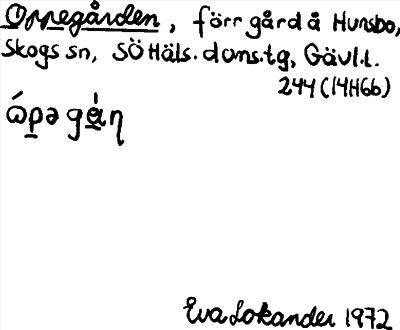 Oppegården, förr gård å Hunsbo,
Skogs sn, SÖ Häls. doms.tg, Gävl.l.
244 (14H6b)
ὼpə gα̇η
Eva Lokander 1972